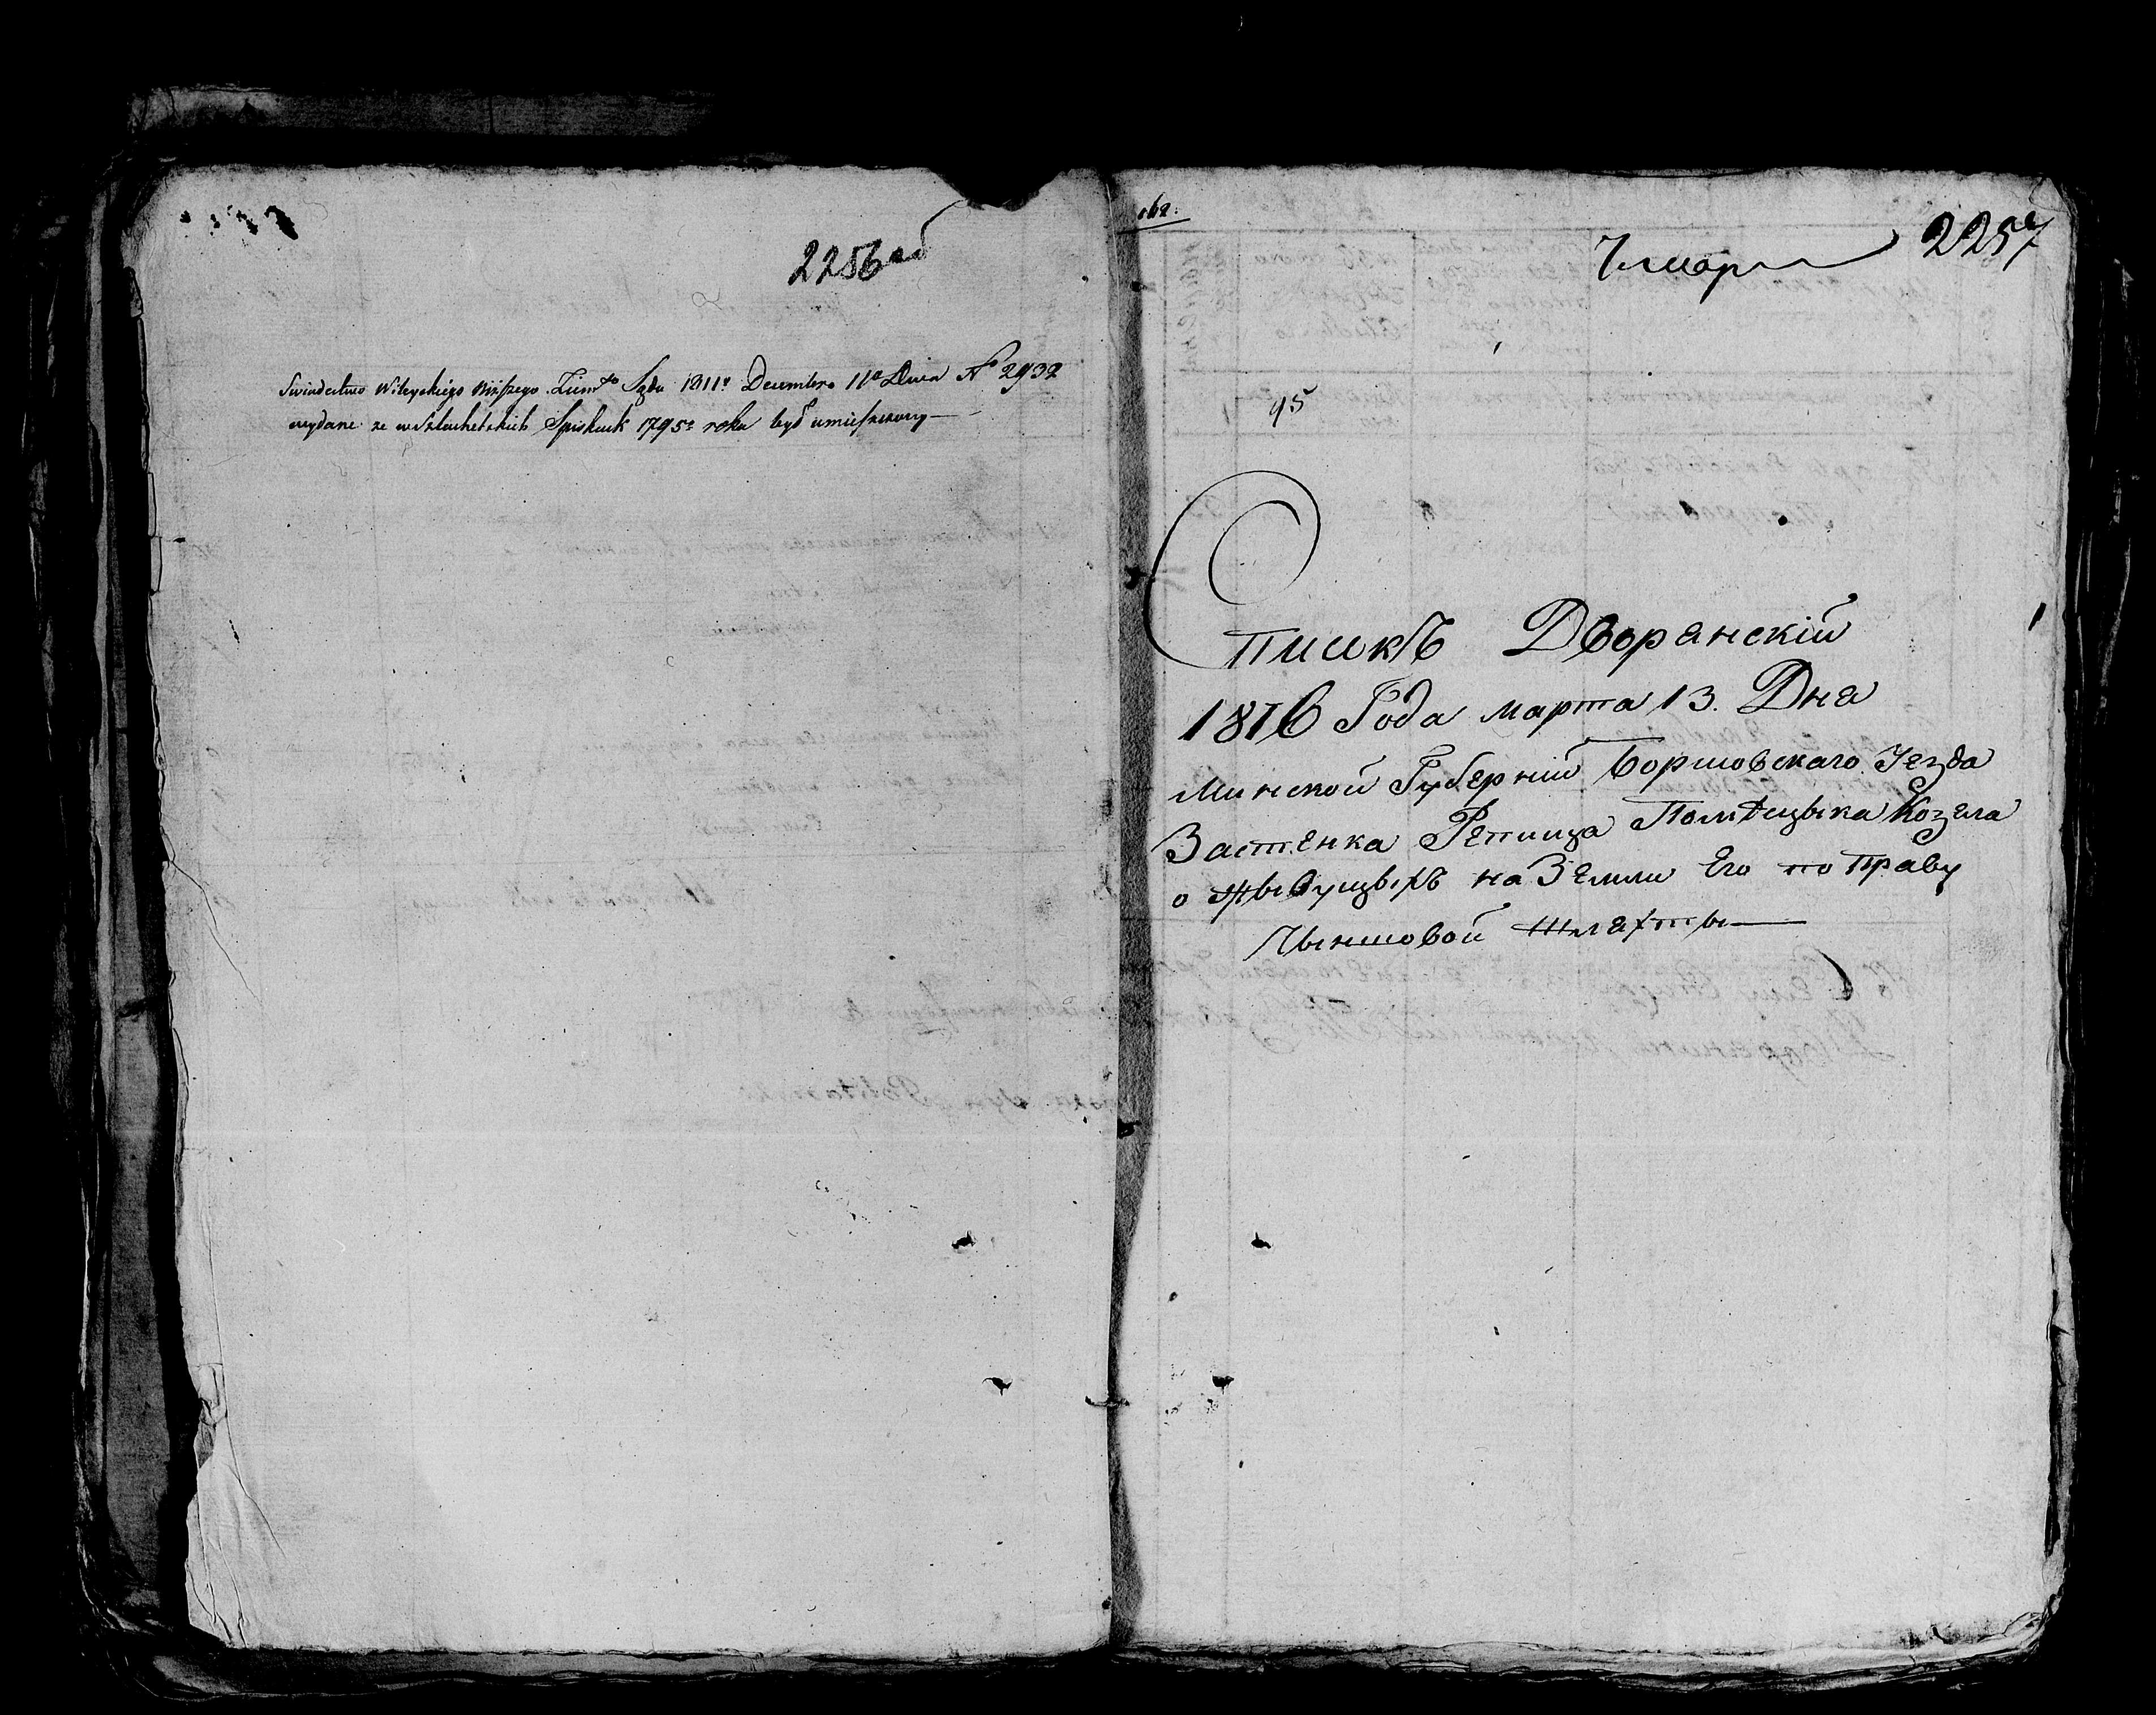 2256 об
Swiadectwo Wileyskiego Niższego Ziemgo Sądu 1811o Decembra 11o Dnia No 2932
wydane ze w Szlachetskich Spiskach 1795o roku był umieszczony—
2257
95
Списокъ Дворянскій
1816 Года марта 13. Дня
Минской Губерній Боришовскаго Уезда
Застенка Репища Помѣщыка Козела
о Жывущыхъ на Земли Его по праву
Чыншовой Шляхты—